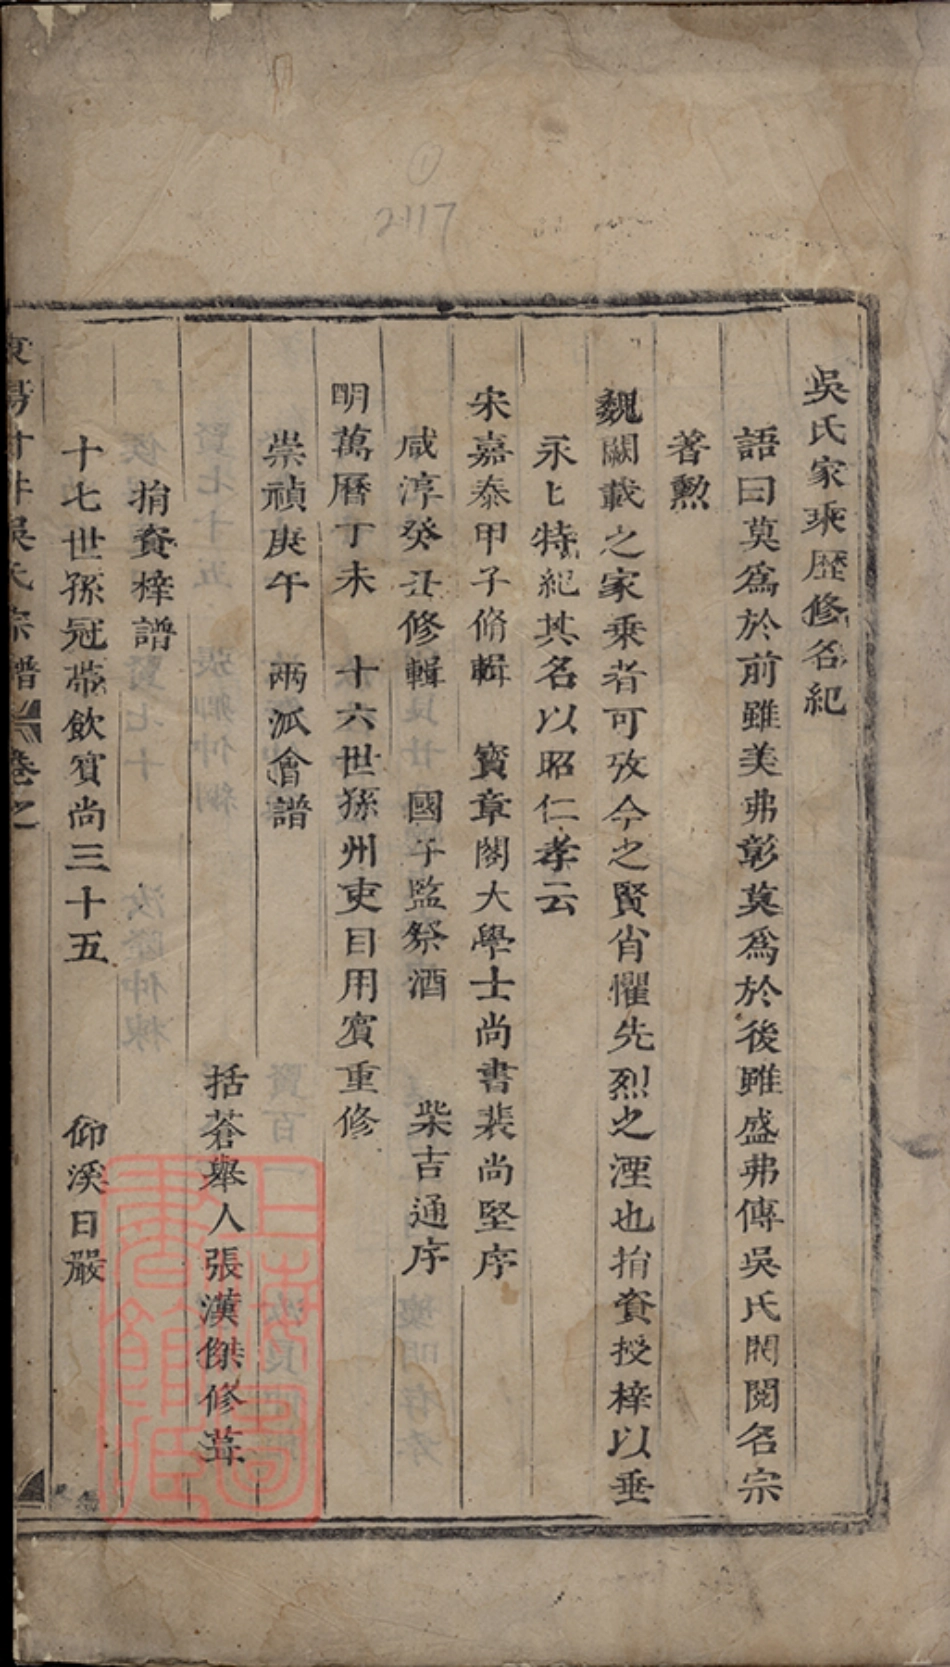 吳氏家乘歴修名紀
語曰莫爲於前雖美弗彰莫爲於後雖盛弗傳吳氏閥閱名宗
著勲
魏闕載之家乗者可攷今之賢肖懼先烈之湮也捐資授梓以垂
永匕特紀其名以昭仁孝云
宋嘉泰甲子脩輯 寶章閣大學士尚書裴尚堅序
咸淳癸丑修輯 國子監祭酒 柴吉通序
明萬曆丁未 十六世孫州吏目用賓重修
崇禎庚午 兩派會譜
括蒼舉人張漢傑修葺
捐資梓譜
十七世孫冠帶飲賓尚三十五 仰溪日嚴
吳氏宗譜 卷之
2117
上海圖書館藏